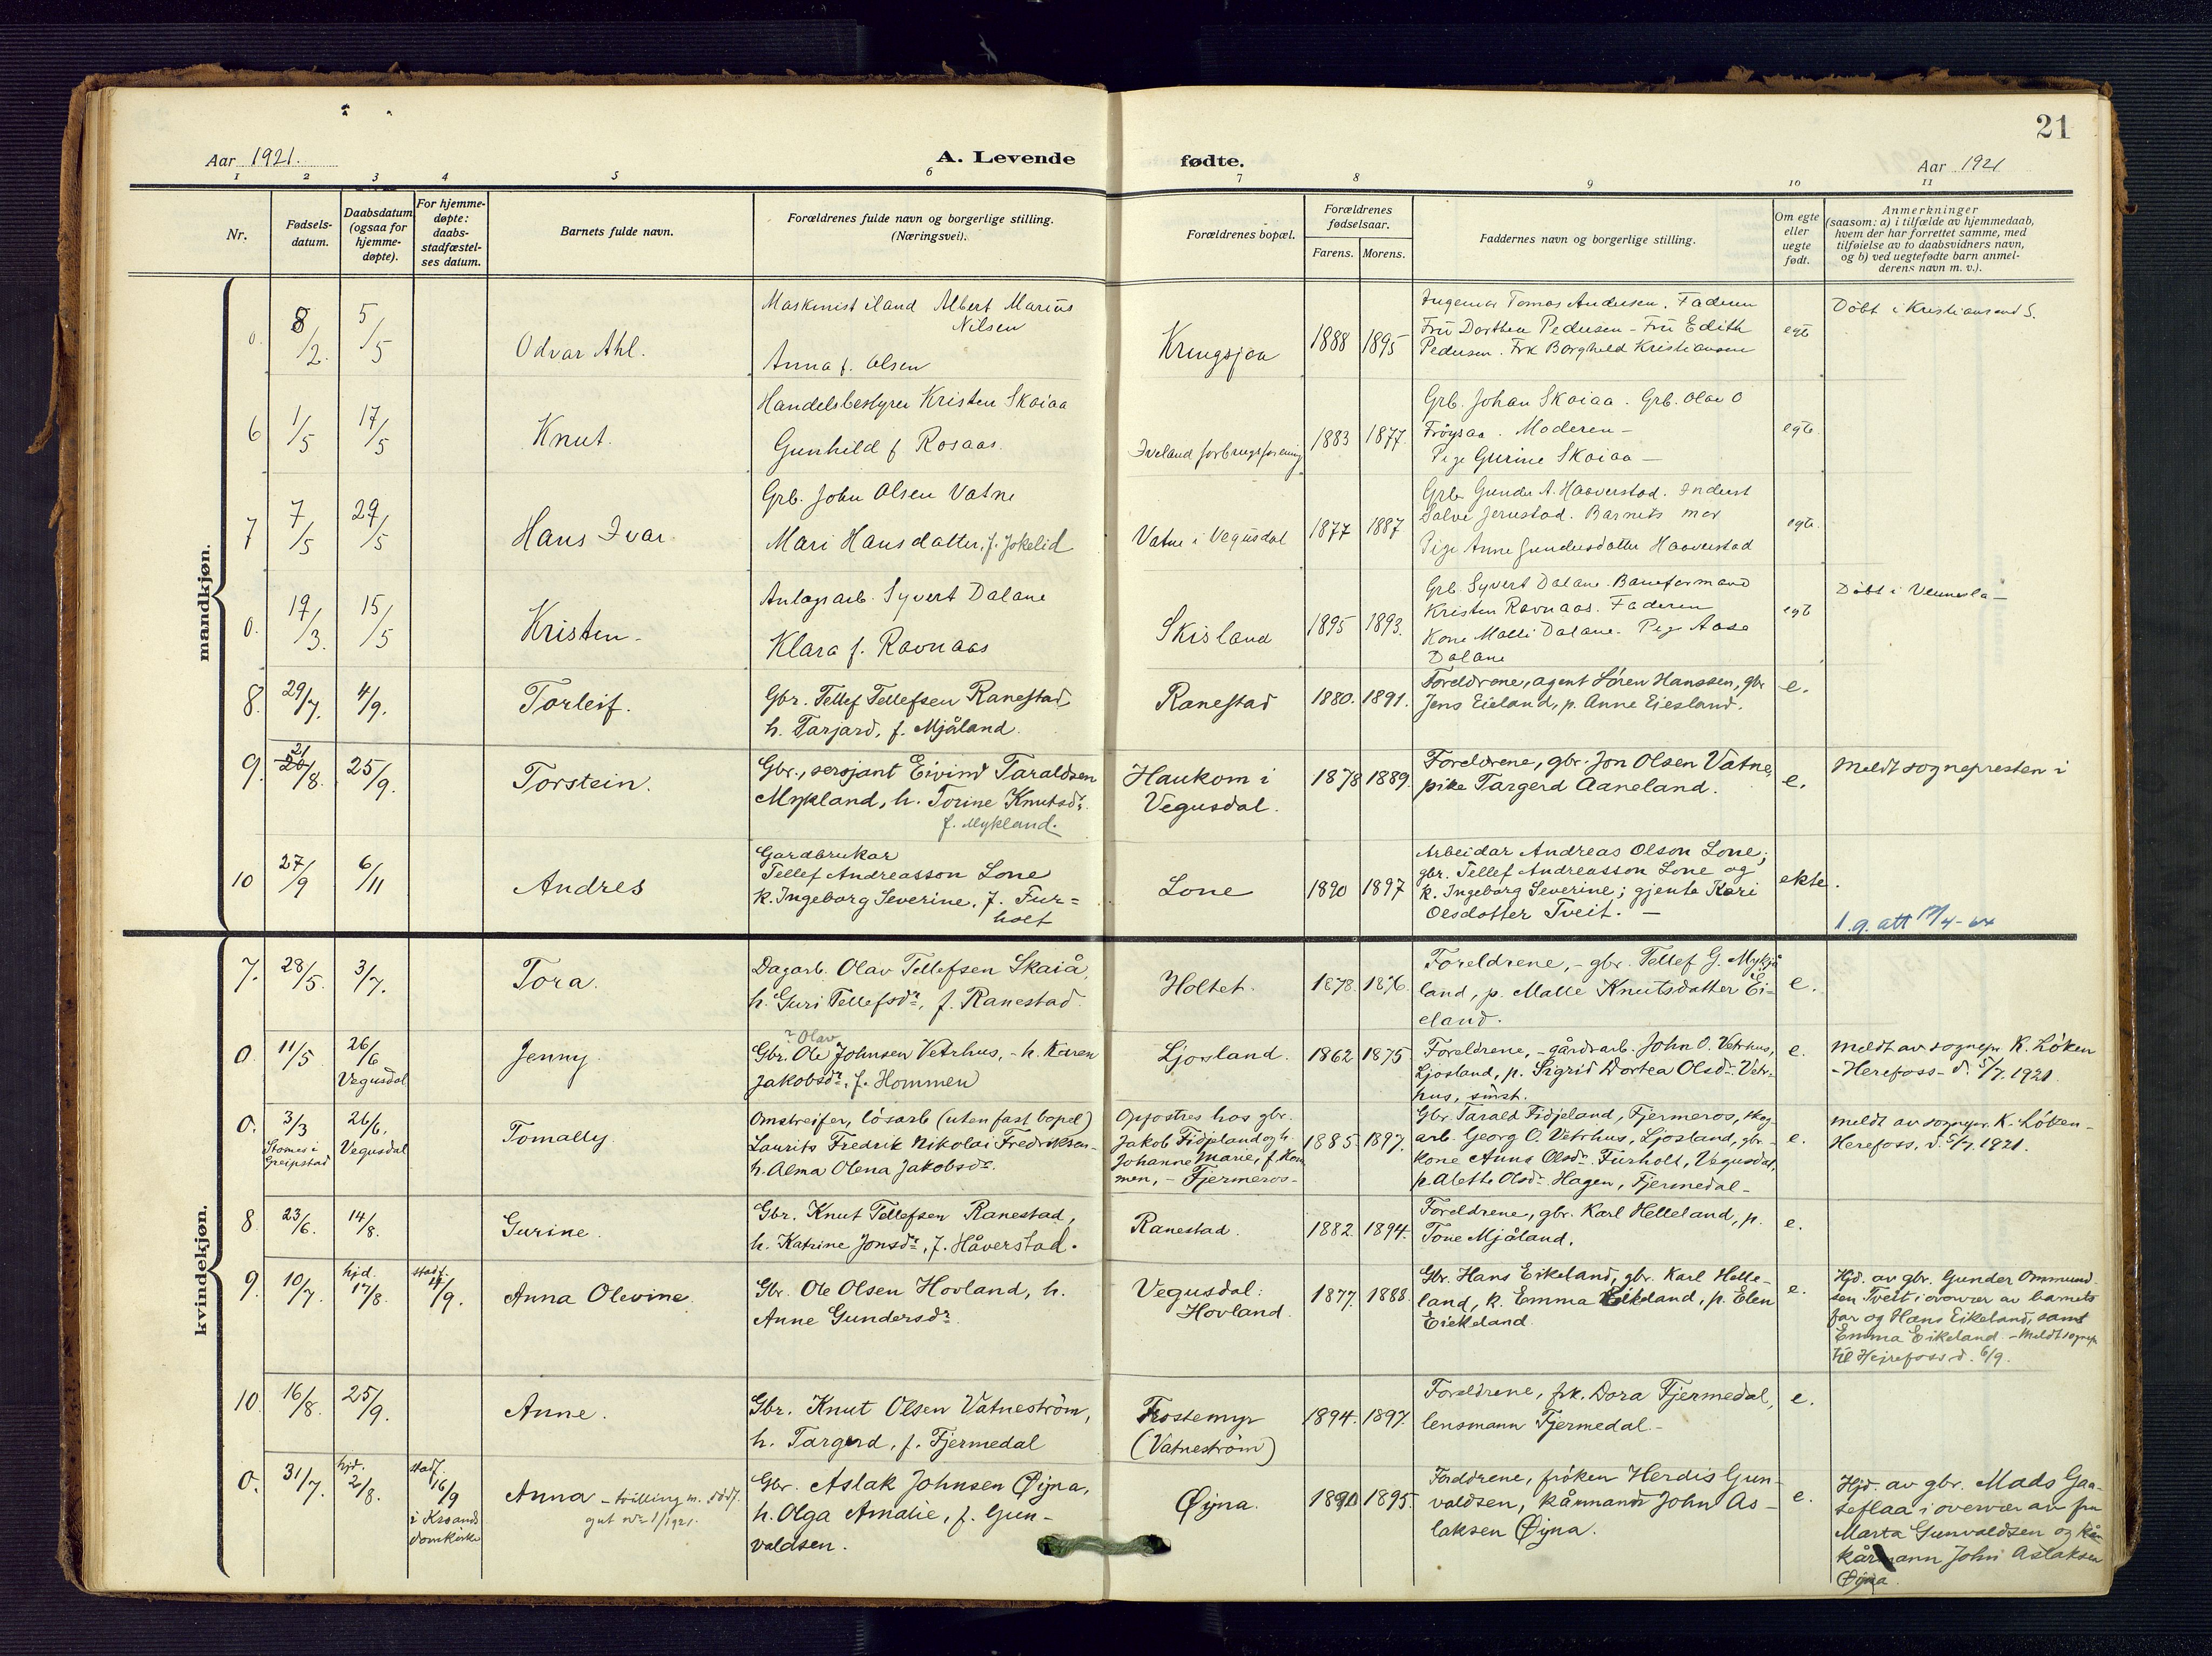 21
Aar 1921.
A. Levende fødte.
Aar 1921
1 2 3 4 5 6 7 8 9 10 11
Nr.
Fødsels-
datum.
Daabsdatum
(ogsaa for
hjemme-
døpte).
For hjemme-
døpte:
daabs-
stadfæstel-
ses datum.
Barnets fulde navn.
Forældrenes fulde navn og borgerlige stilling.
(Næringsvei).
Forældrenes bopæl.
Forældrenes
fødselsaar.
Farens. Morens.
Faddernes navn og borgerlige stilling.
Om egte
eller
uegte
født.
Anmerkninger
(saasom: a) i tilfælde av hjemmedaab,
hvem der har forrettet samme, med
tilføielse av to daabsvidners navn,
og b) ved uegtefødte barn anmel-
derens navn m. v.).
mandkjøn.
0. 8/2. 5/5
Odvar Ahl.
Maskinist Albert Marius
Nilsen
Anna f. Olsen
Kringsjaa
1888 1895
Tomas Andersen. Faderen
Fru Dorthea Pedersen - Fru Edith
Pedersen. Frk Borghild Kristiansen
egte
Döbt i Kristiansand S.
6 1/5 17/5
Knut.
Handelsbestyrer Kristen Skaiaa
Gunhild f Rosaas.
Iveland forbrugsforening
1883 1877.
Grb. Johan Skaiaa. Grb. Olav O
Fröysaa. Moderen -
Pige Gurine Skaiaa -
egte.
7 7/5 29/5
Hans Ivar
Grb. John Olsen Vatne
Mari Hansdatter, f. Jokelid
Vatne i Vegusdal
1877 1887
Grb. Gunder A. Haaverstad. Inderst
Salve Jerustad. Barnets mor
Pige Anne Gundersdatter Haaverstad
egte.
0. 17/3. 15/5
Kristen -
Anlægsarb. Syvert Dalane
Klara f. Ravnaas
Skisland
1895 1893.
Grb. Syvert Dalane. Baneformand
Kristen Ravnaas. Faderen
Kone Malli Dalane. Pige Aase
Dalane
egte
Döbt i Vennesla -
8. 29/7. 4/9.
Torleif.
Gbr. Tellef Tellefsen Ranestad,
h. Tarjard, f. Mjåland.
Ranestad
1880. 1891.
Foreldrene, agent Sören Hanssen, gbr
Jens Eieland, p. Anne Eiesland.
e.
9. 21/8. 25/9.
Torstein.
Gbr., sersjant Eivind Taraldsen
Mykland, h. Torine Knutsdr.
f. Mykland.
Haukom i
Vegusdal.
1878 1889.
Foreldrene, gbr. Jon Olsen Vatne,
pike Targerd Aaneland.
e.
Meldt sognepresten i
10 27/9 6/11
Andres
Gardbrukar
Tellef Andreasson Lone
k. Ingeborg Severine, f. Fur=
holt
Lone
1890 1897
Arbeidar Andreas Olson Lone;
gbr. Tellef Andreasson Lone og
k. Ingeborg Severine; gjenta Kari
Olsdotter Tveit. -
ekte.
1. g. att 17/4-64
kvindekjøn.
7. 28/5. 3/7.
Tora.
Dagarb. Olav Tellefsen Skaiå,
h. Guri Tellefsdr., f. Ranestad.
Holtet.
1878. 1876.
Foreldrene, - gbr. Tellef G. Mykjå
land, p. Malle Knutsdatter Ei-
eland.
e.
0. 11/5 26/6 Vegusdal
Jenny.
? Olav
Gbr. Ole Johnsen Vetrhus, - h. Karen
Jakobsdr., f. Hommen
Ljosland.
1862 1875
Foreldrene, - gårdsarb. John O. Vetrhus,
Ljosland, p. Sigrid Dortea Olsdr. Vetr-
hus, smst.
e.
Meldt av sognepr. K. Løken
- Herefoss - d. 5/7. 1921.
0. 3/3 Stomes i Greipstad 26/6. Vegusdal
Tomally.
Omstreifer, lösarb (uten fast bopel)
Laurits Fredrik Nikolai Fredriksen -
h. Alma Olena Jakobsdr.
Opfostres hos gbr.
Jakob Fidjeland og h.
Johanne Marie, f. Hom
men, - Fjermeros -
1885 1897.
Gbr. Tarald Fidjeland, Fjermeros, skog
arb. Georg O. Vetrhus, Ljosland, gbr. -
kone Anna Olsdr. Furholt, Vegusdal,
p. Alette Olsdr. Hagen, Fjermedal -
e.
meldt av sognepr. K. Løken -
Herefoss, d. 5/7 1921.
8 23/6. 14/8.
Gurine.
Gbr. Knut Tellefsen Ranestad,
h. Katrine Jonsdr., f. Håverstad.
Ranestad.
1882. 1894.
Foreldrene, gbr. Karl Helleland, p.
Tone Mjåland.
e.
9. 10/7. hjd. 17/8. stadf. 4/9.
Anna Olevine
Gbr. Ole Olsen Hovland, h.
Anne Gundersdr.
Vegusdal:
Hovland.
1877. 1888.
Gbr. Hans Eikeland, gbr. Karl Helle-
land, k. Emma Eikeland, p. Elen
Eiekeland.
e.
Hjd. av gbr. Gunder Ommund-
sen Tveit i overvær av barnets
far og Hans Eikeland, samt
Emma Eikeland. - Meldt sognepr
til Heirefoss d. 6/9.
10. 16/8. 25/9.
Anne.
Gbr. Knut Olsen Vatneström,
h. Targerd, f. Fjermedal
Frostemyr
(Vatneström)
1894. 1897.
Foreldrene, frk. Dora Fjermedal,
lensmann Fjermedal -
e.
0. 31/7. hjd. 2/8. stadf. 16/9 i Krsands domkirke
Anna - tvilling m. dödf.
gut nr. 1/1921.
Gbr. Aslak Johnsen Øyna,
h. Olga Amalie, f. Gun-
valdsen.
Øyna.
1890 1895.
Foreldrene, fröken Herdis Gun-
valdsen, kårmann John As-
laksen Øyna.
e.
Hjd. av gbr. Mads Gaa-
seflaa i overvær av fru
Marta Gunvaldsen og
kårmann John Aslaksen
Øyna.